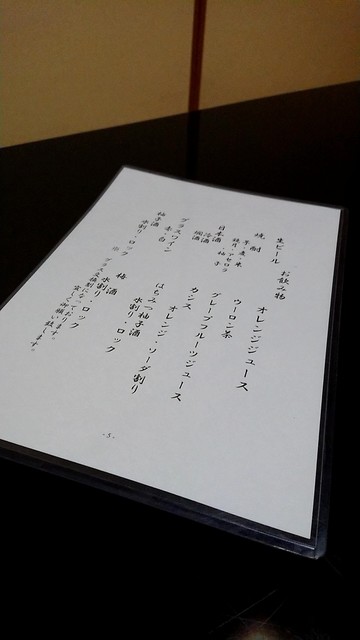 お飲み物
生ビール
オレンジジュース
焼酎
芋・麦・米
ウーロン茶
グレープフルーツジュース
日本酒
冷酒
燗酒
カシス
オレンジ・ソーダ割り
グラスワイン
赤・白
はちみつ柚子酒
水割り・ロック
柚子酒
水割り・ロック
梅酒
水割り・ロック
※グラス交換制になっております。
宜しく御願い致します。
-5-